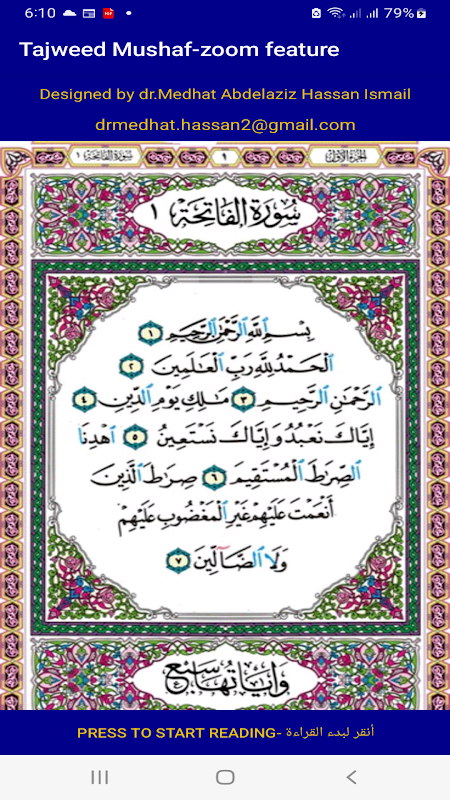 6:10
79%
Tajweed Mushaf-zoom feature
Designed by dr.Medhat Abdelaziz Hassan Ismail
drmedhat.hassan2@gmail.com
سُورَةُ الفَاتِحَة ١
١
الجزء الأول
سُورَةُ الفَاتِحَةِ ١
بِسْمِ ٱللَّهِ ٱلرَّحْمَٰنِ ٱلرَّحِيمِ ١
ٱلْحَمْدُ لِلَّهِ رَبِّ ٱلْعَٰلَمِينَ ٢
ٱلرَّحْمَٰنِ ٱلرَّحِيمِ ٣ مَٰلِكِ يَوْمِ ٱلدِّينِ ٤
إِيَّاكَ نَعْبُدُ وَإِيَّاكَ نَسْتَعِينُ ٥ ٱهْدِنَا
ٱلصِّرَٰطَ ٱلْمُسْتَقِيمَ ٦ صِرَٰطَ ٱلَّذِينَ
أَنْعَمْتَ عَلَيْهِمْ غَيْرِ ٱلْمَغْضُوبِ عَلَيْهِمْ
وَلَا ٱلضَّآلِّينَ ٧
وَآيَاتُهَا سَبْعٌ
PRESS TO START READING- أنقر لبدء القراءة